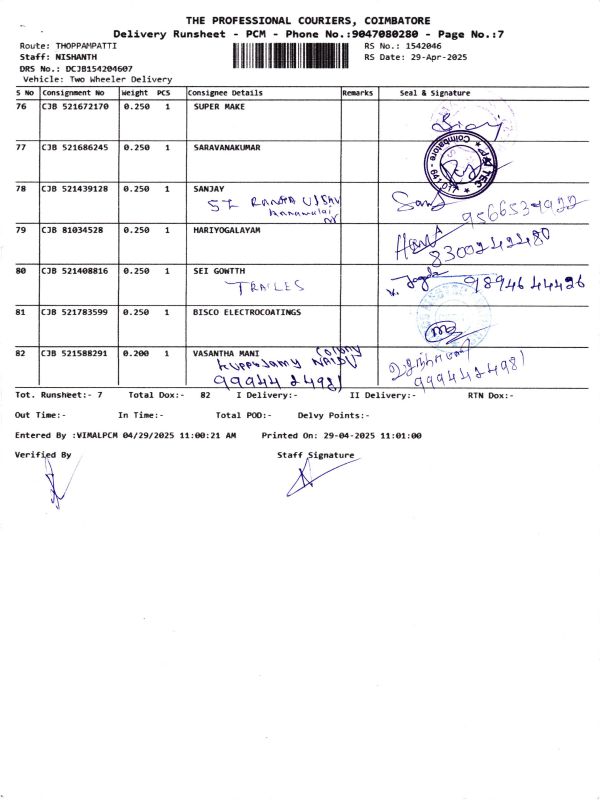 THE PROFESSIONAL COURIERS, COIMBATORE
Delivery Runsheet - PCM - Phone No.:9047080280 - Page No.:7
Route: THOPPAMPATTI RS No.: 1542046
Staff: NISHANTH RS Date: 29-Apr-2025
DRS No.: DCJB154204607
Vehicle: Two Wheeler Delivery
S No Consignment No Weight PCS Consignee Details Remarks Seal & Signature
76 CJB 521672170 0.250 1 SUPER MAKE
77 CJB 521686245 0.250 1 SARAVANAKUMAR
Coimbatore - 641 017
TEC
78 CJB 521439128 0.250 1 SANJAY
9566539922
79 CJB 81034528 0.250 1 HARIYOGALAYAM
8300242480
80 CJB 521408816 0.250 1 SEI GOWTTH
TRAILES 9894644426
81 CJB 521783599 0.250 1 BISCO ELECTROCOATINGS
82 CJB 521588291 0.200 1 VASANTHA MANI
Colony
Kuppusamy NAIDU
9994424981 9994424981
Tot. Runsheet:- 7 Total Dox:- 82 I Delivery:- II Delivery:- RTN Dox:-
Out Time:- In Time:- Total POD:- Delvy Points:-
Entered By :VIMALPCM 04/29/2025 11:00:21 AM Printed On: 29-04-2025 11:01:00
Verified By Staff Signature